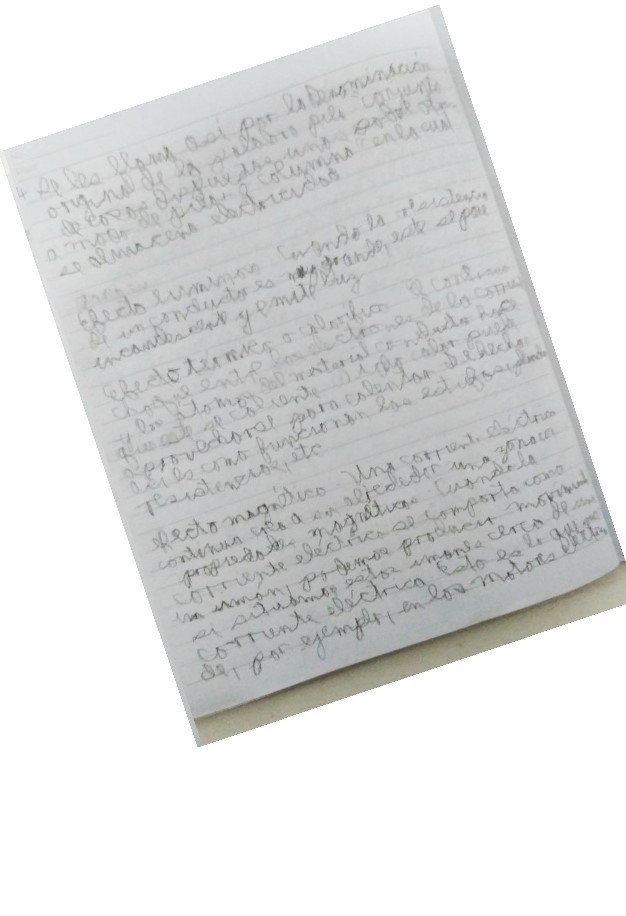 4 Se les llama así por la denominación
origina de la palabra pila conjunto
de cosas dispuestas unas sobre otra
a modo de pila o columna en la cual
se almacena electricidad
Efecto luminoso Cuando la resistencia
de un conducto es muy grande, este se pone
incandescente y emite luz
Efecto térmico o calorífico El continuo
choque entre los electrones de la corrie
y los átomos del material conducto hace
que este se caliente Este calor puede
aprovecharse para calentar De hecho
así es como funcionan las estufas
resistencia, etc
Efecto magnético Una corriente eléctrica
continua crea a su alrededor una zona con
propiedades magnéticas Cuando la
corriente eléctrica se comporta como
un imman, podemos producir movimient
si situamos estos imanes cerca de una
corriente eléctrica Esto es lo que
de, por ejemplo, en los motores